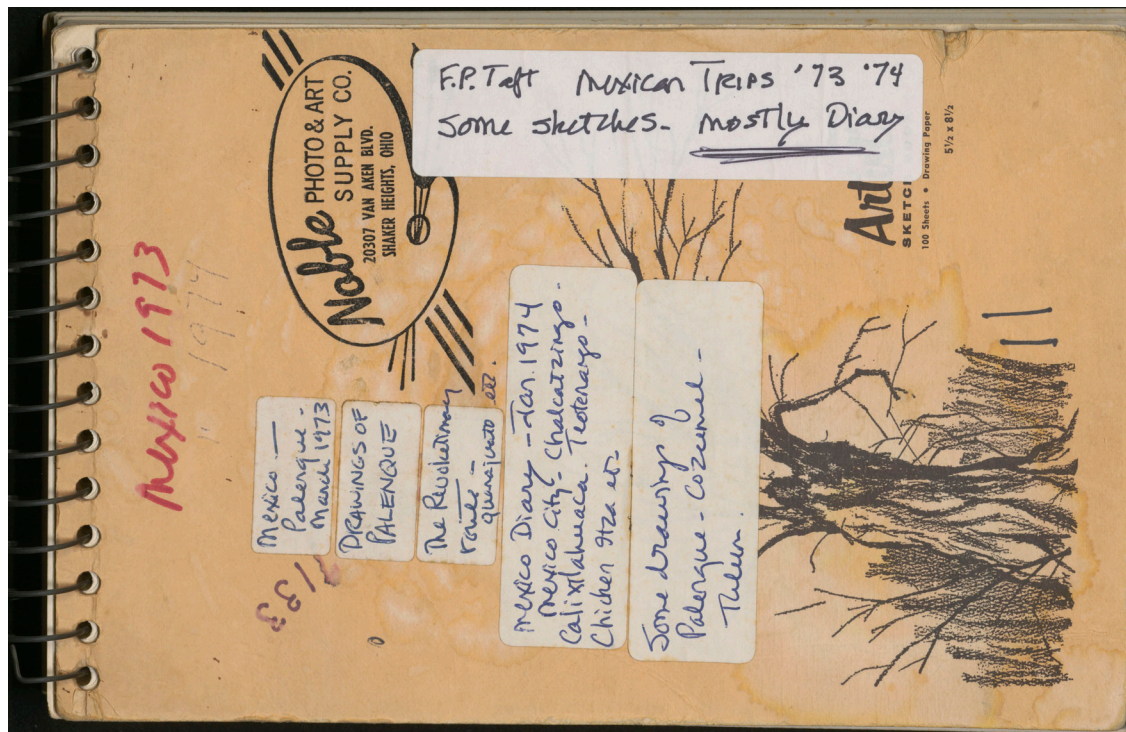 F.P. Taft Mexican Trips '73 '74
Some sketches - mostly Diary
Noble PHOTO & ART
SUPPLY CO.
20307 VAN AKEN BLVD.
SHAKER HEIGHTS, OHIO
Art
SKETC
100 Sheets • Drawing Paper
5½ x 8½
Mexico 1973
1974
Mexico —
Palenque -
March 1973
DRAWINGS OF
PALENQUE
The Revolutionary
route -
guanajuato etc.
Mexico Diary - Jan. 1974
Mexico City - Chalcatzingo.
Calixtlahuaca. Teotenango -
Chichen Itza etc -
Some drawings of
Palenque - Cozumel -
Tulum.